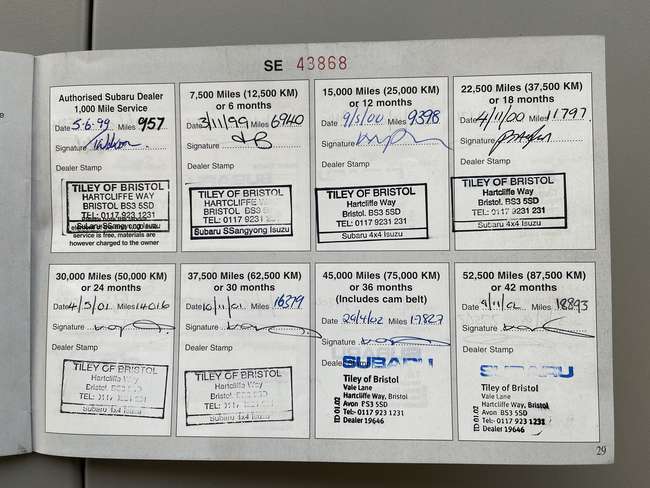 SE 43868
Authorised Subaru Dealer
1,000 Mile Service
Date 5.6.99 Miles 957
Signature
Dealer Stamp
TILEY OF BRISTOL
HARTCLIFFE WAY
BRISTOL BS3 5SD
TEL: 0117 923 1231
Subaru SSangyong Isuzu
service is free, materials are
however charged to the owner
7,500 Miles (12,500 KM)
or 6 months
Date 3/11/99 Miles 6940
Signature
Dealer Stamp
TILEY OF BRISTOL
HARTCLIFFE WAY
BRISTOL BS3 5SD
TEL: 0117 923 1231
Subaru SSangyong Isuzu
15,000 Miles (25,000 KM)
or 12 months
Date 9/5/00 Miles 9398
Signature
Dealer Stamp
TILEY OF BRISTOL
Hartcliffe Way
Bristol. BS3 5SD
TEL: 0117 9231 231
Subaru 4x4 Isuzu
22,500 Miles (37,500 KM)
or 18 months
Date 4/11/00 Miles 11797
Signature
Dealer Stamp
TILEY OF BRISTOL
Hartcliffe Way
Bristol. BS3 5SD
TEL: 0117 9231 231
Subaru 4x4 Isuzu
30,000 Miles (50,000 KM)
or 24 months
Date 4/5/01 Miles 14016
Signature
Dealer Stamp
TILEY OF BRISTOL
Hartcliffe Way
Bristol. BS3 5SD
TEL: 0117 9231 231
Subaru 4x4 Isuzu
37,500 Miles (62,500 KM)
or 30 months
Date 10/11/01 Miles 16379
Signature
Dealer Stamp
TILEY OF BRISTOL
Hartcliffe Way
Bristol. BS3 5SD
TEL: 0117 9231 231
Subaru 4x4 Isuzu
45,000 Miles (75,000 KM)
or 36 months
(Includes cam belt)
Date 29/4/02 Miles 17827
Signature
Dealer Stamp
SUBARU
Tiley of Bristol
Vale Lane
Hartcliffe Way, Bristol
Avon BS3 5SD
Tel:- 0117 923 1231
Dealer 19646
TD 01.02
52,500 Miles (87,500 KM)
or 42 months
Date 9/11/02 Miles 18893
Signature
Dealer Stamp
SUBARU
Tiley of Bristol
Vale Lane
Hartcliffe Way, Bristol
Avon BS3 5SD
Tel:- 0117 923 1231
Dealer 19646
TD 01.02
29